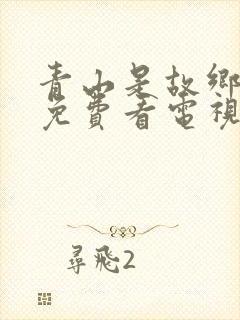 青山是故鄉
免費看電視
尋飛2